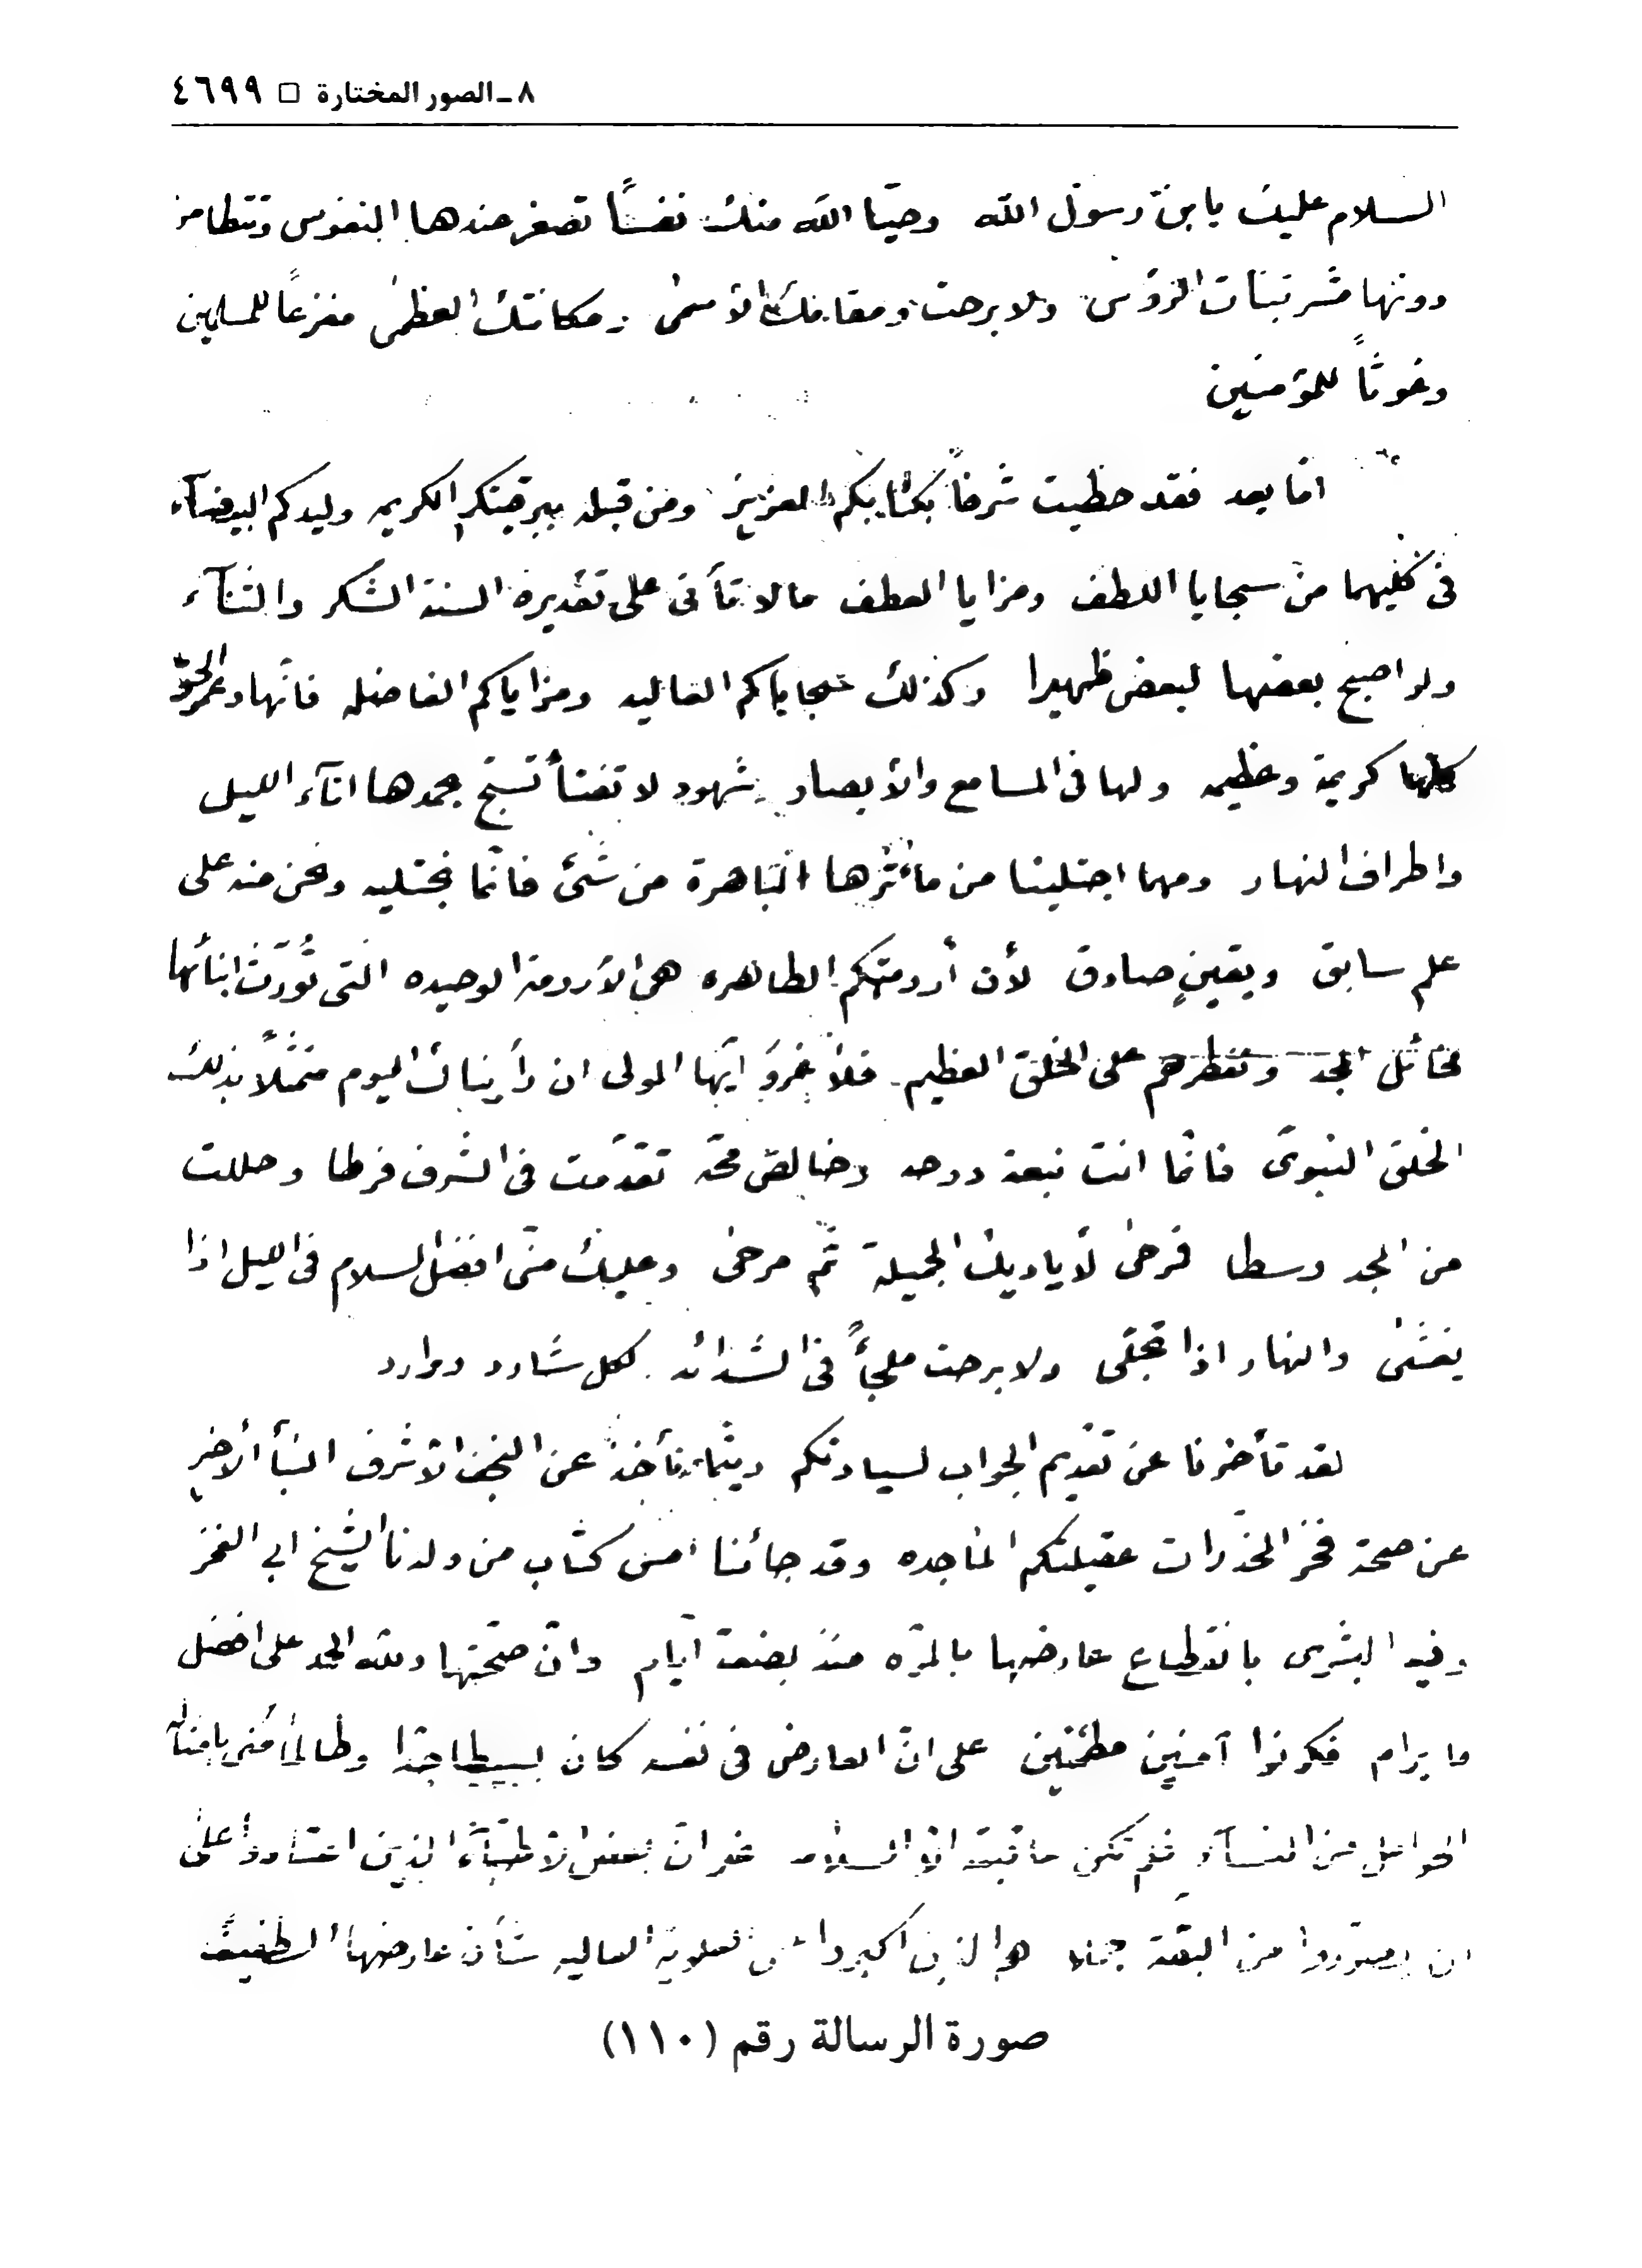 ٨ ـ الصور المختارة □ ٤٦٩٩
السلام عليك يابن رسول الله وحيّا الله منك نفسًا تصغر عندها النفوس وتتطامن
دونها مشرئبات الرؤس ولا برحت ومقامك الأسمى ومكانتك العظمى مفزعًا للمسلمين
وغوثًا للمؤمنين
امّا بعد فقد حظيت شرفاً بكتابكم العزيز ومن قبله ببرقيتكم الكريمه وليدكم البيضآء
في كليهما من سجايا اللطف ومزايا العطف مالا تأتى على تقديره السنة الشكر والثنآء
ولو اصبح بعضها لبعض ظهيرا وكذلك سجاياكم العاليه ومزاياكم الفاضله فانّها وعمر الحقّ
كلها كريمة وعظيمه ولها فى المسامع والأبصار شهود لا تفتأ تسبّح بحمدها اناآء الليل
واطراف النهار ومهما اجتلينا من مأثرها الباهرة من شىء فانّما نجتليه ونحن منه على
علم سابق ويقينٍ صادق لأن أرومتكم الطاهره هى الأرومة الوحيده التى تُورّث ابنائها
مخائل المجد وتفطرهم على الخلق العظيم فلا غروَ ايّها المولى ان رأيناك اليوم متمثّلاً بذلك
الخلق النبوىّ فانّما انت نبعة دوحه وخالص محّه تقدّمت فى الشرف فرطا وحللت
من المجد وسطا فرحى لأياديك الجميلة ثمّ مرحى وعليك منّى افضل السلام فى الليل اذا
يغشى والنهار اذا تجلّى ولا برحت ملجأً فى الشدائد لكل شارد ووارد
لقد تأخرنا عن تقديم الجواب لسيادتكم ريثما نأخذ عن النجف الأشرف النبأ الأخير
عن صحة فخر المخدّرات عقيلتكم الماجده وقد جائنا امس كتاب من ولدنا الشيخ ابي الفخر
وفيه البشرى بانقطاع عارضها بالمرّه منذ بضعة ايّام وانّ صحّتها ولله الحمد على افضل
ما يرام فكونوا آمنين مطمئنين على انّ العارض فى نفسه كان بسيطا جدّا وطالما مُنى بامثاله
الحوامل من النسآء فلم تكن عاقبته الّا السلامه غير انّ بعض الأطبّآء الذين اعتادوا على
ان يصوّروا من البقّة هم الذين اكبروا العلوية العاليه شأن عارضها الطفيف
صورة الرسالة رقم (١١٠)